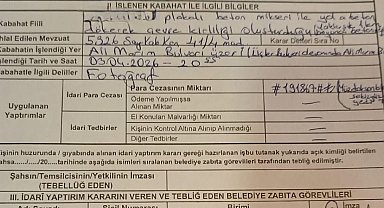 II. İŞLENEN KABAHAT İLE İLGİLİ BİLGİLER
Kabahat Fiili plakalı beton mikseri ile yola beton
dökerek çevre kirliliği oluşturduğu
İhlal Edilen Mevzuat 5326 Say. Kab. Kan. 41/4 mad. Karar Defteri Sıra No
Kabahatin İşlendiği Yer
İşlendiği Tarih ve Saat 03.04.2026 - 20
Kabahatle İlgili Deliller Fotoğraf
Uygulanan Yaptırımlar
İdari Para Cezası
Para Cezasının Miktarı
Ödeme Yapılmışsa Alınan Miktar
İdari Tedbirler
El Konulan Malvarlığı Miktarı
Kişinin Kontrol Altına Alınıp Alınmadığı
Diğer Tedbirler
kişinin huzurunda / gıyabında alınan idari yaptırım kararı gereği hazırlanan işbu tutanak yukarıda açık kimliği belirtilen
şahsa....../...../20..... tarihinde aşağıda isimleri sıralanan belediye zabıta görevlileri tarafından tebliğ edilmiştir.
Şahsın/Temsilcisinin/Yetkilinin İmzası
(TEBELLÜĞ EDEN)
III. İDARİ YAPTIRIM KARARINI VEREN VE TEBLİĞ EDEN BELEDİYE ZABITA GÖREVLİLERİ
Adı Soyadı Sicil Numarası Birimi İmza